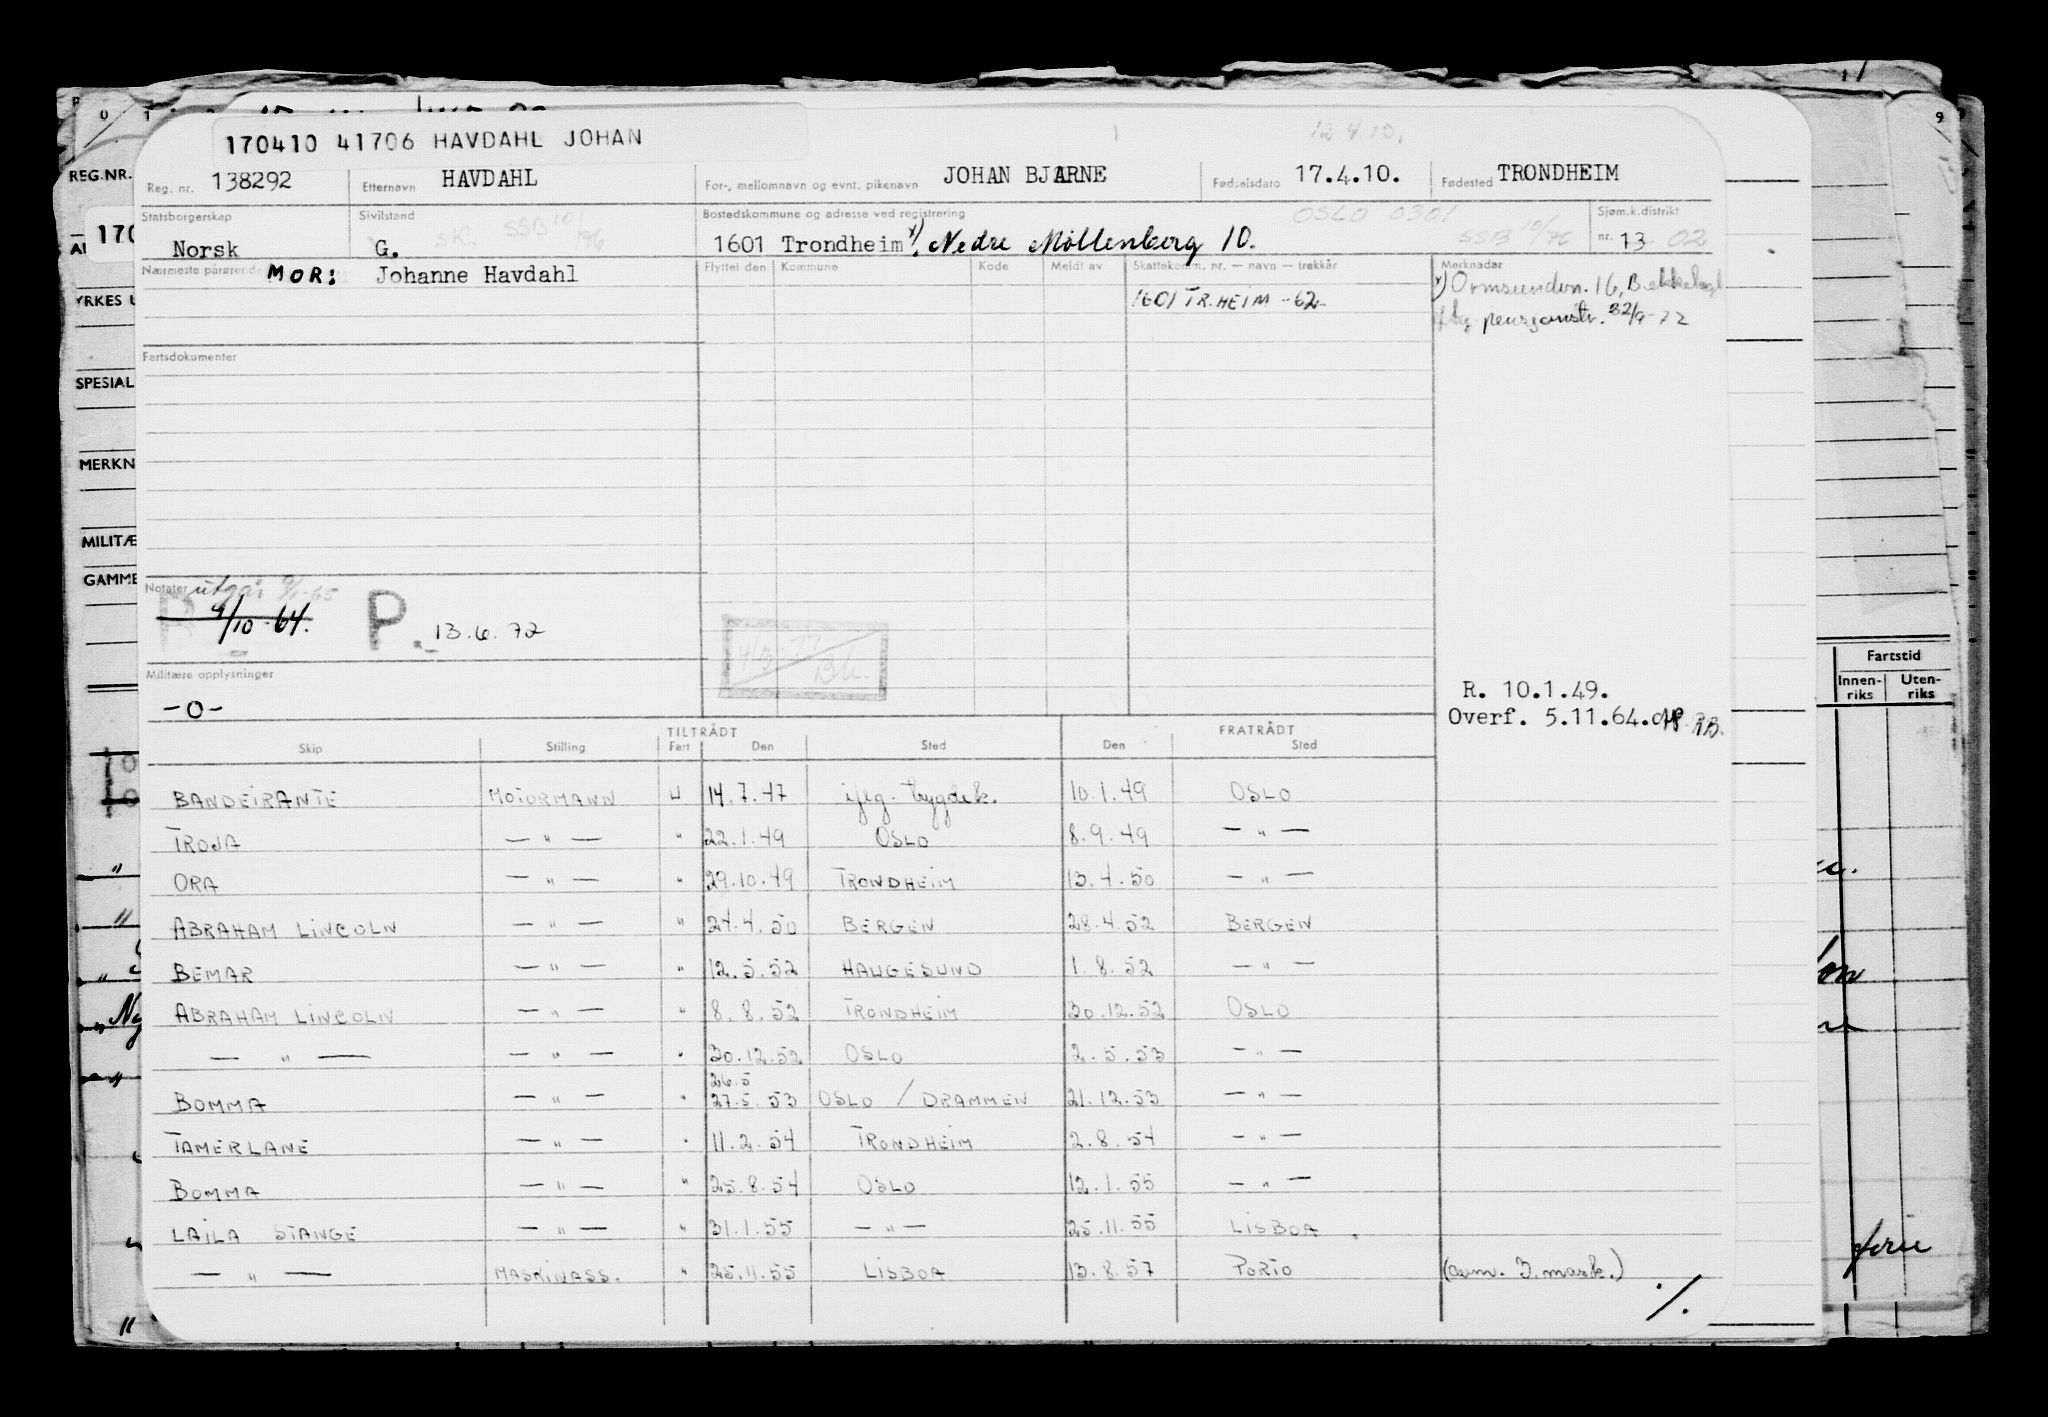 170410 41706 HAVDAHL JOHAN
12.4.10.
REG.NR.
Reg. nr. 138292 Etternavn HAVDAHL For-, mellomnavn og evnt. pikenavn JOHAN BJARNE Fødselsdato 17.4.10. Fødested TRONDHEIM
Statsborgerskap Sivilstand Bostedskommune og adresse ved registrering OSLO 0301 Sjøm.k.distrikt
Norsk G. SSB 10/76 1601 Trondheim x) Nedre Möllenberg 10. SSB 10/76 nr. 13 02
Nærmeste pårørende MOR: Johanne Havdahl Flyttet den Kommune Kode Meldt av Skattekomm. nr. — navn — trekkår Merknader
1601 TR.HEIM -62- x) Ormsundvn. 16, Bekkelaget
pensjonistr. 32/9-72
YRKES
Fartsdokumenter
SPESIAL
MERKN
MILITÆ
GAMME
Notater utgår 9/1-65
P 9/10-64. P. 13.6.72
4/3-77
Militære opplysninger
-0-
R. 10.1.49.
Overf. 5.11.64.
Fartstid
Innen-riks Uten-riks
TILTRÅDT FRATRÅDT
Skip Stilling Fart Den Sted Den Sted
BANDEIRANTE MOTORMANN U 14.7.47 iflg. bygdek. 10.1.49 OSLO
TROJA — " — " 22.1.49 OSLO 8.9.49 — " —
ORA — " — " 29.10.49 TRONDHEIM 13.4.50 — " —
ABRAHAM LINCOLN — " — " 24.4.50 BERGEN 28.4.52 BERGEN
BEMAR — " — " 12.5.52 HAUGESUND 1.8.52 — " —
ABRAHAM LINCOLN — " — " 8.8.52 TRONDHEIM 30.12.52 OSLO
— " — — " — " 30.12.52 OSLO 2.5.53 — " —
26.5
BOMMA — " — " 27.5.53 OSLO / DRAMMEN 21.12.53 — " —
TAMERLANE — " — " 11.2.54 TRONDHEIM 2.8.54 — " —
BOMMA — " — " 25.8.54 OSLO 12.1.55 — " —
LAILA STANGE — " — " 31.1.55 — " — 25.11.55 LISBOA
— " — MASKINASS. " 25.11.55 LISBOA 13.8.57 PORTO (aem. 3. mask.)
./.